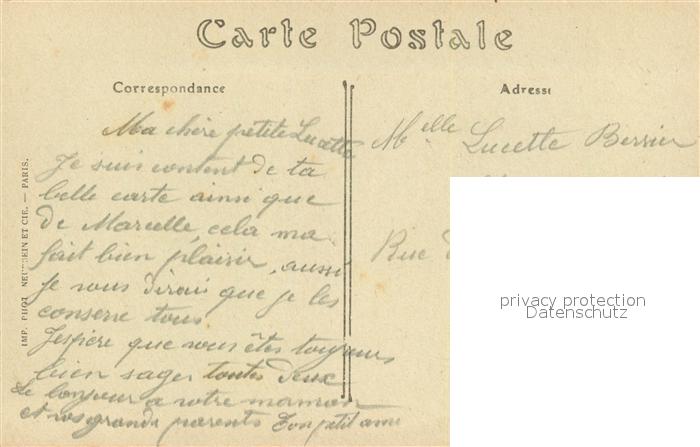 Carte Postale
Correspondance
Adresse
Ma chère petite Lucette
Je suis content de ta
belle carte ainsi que
de Marcelle, cela ma
fait bien plaisir, aussi
je vous dirai que je les
conserve tous
J'espère que vous êtes toujours
bien sages toutes deux
Le bonjour a votre maman
et vos grands parents Ton petit ami
Melle Lucette Berrier
Rue
privacy protection
Datenschutz
IMP. PHOT. NEURDEIN ET CIE. — PARIS.